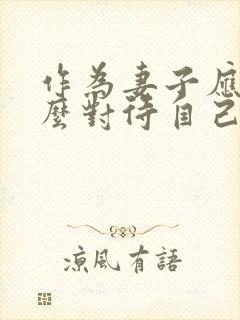 作為妻子應
麼對待自己
涼風有語